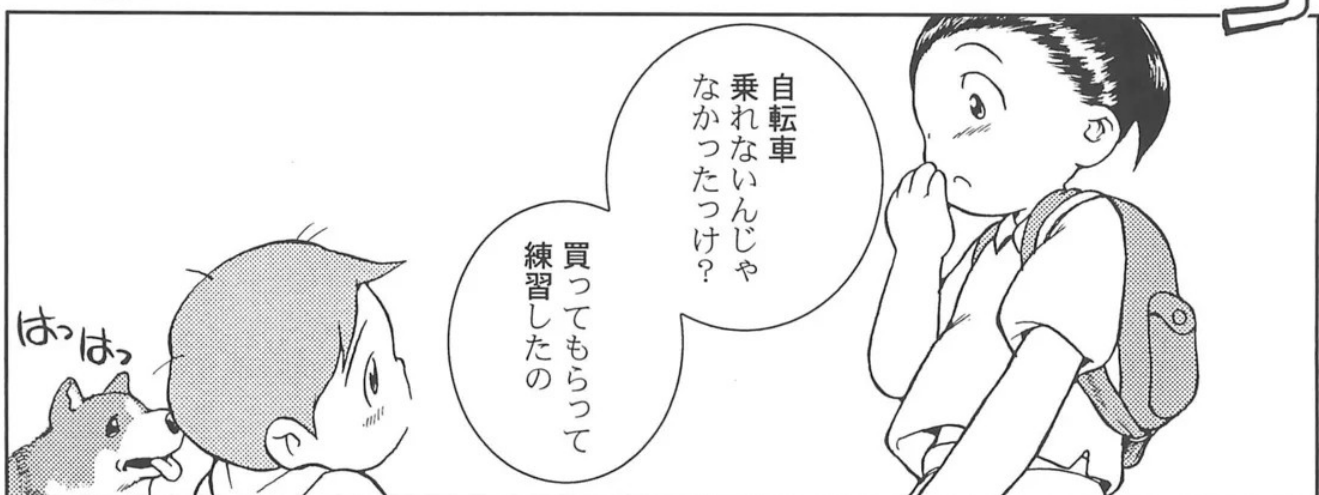 自転車
乗れないんじゃ
なかったっけ？
買ってもらって
練習したの
はっ
はっ